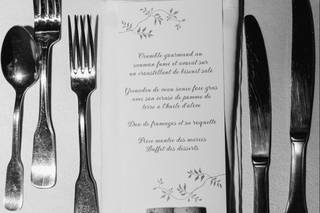 Crumble gourmand au
saumon fumé et avocat sur
un croustillant de biscuit salé
Grenadin de veau sauce foie gras
avec son écrasé de pomme de
terre à l'huile d'olive
Duo de fromages et sa roquette
Pièce montée des mariés
Buffet des desserts